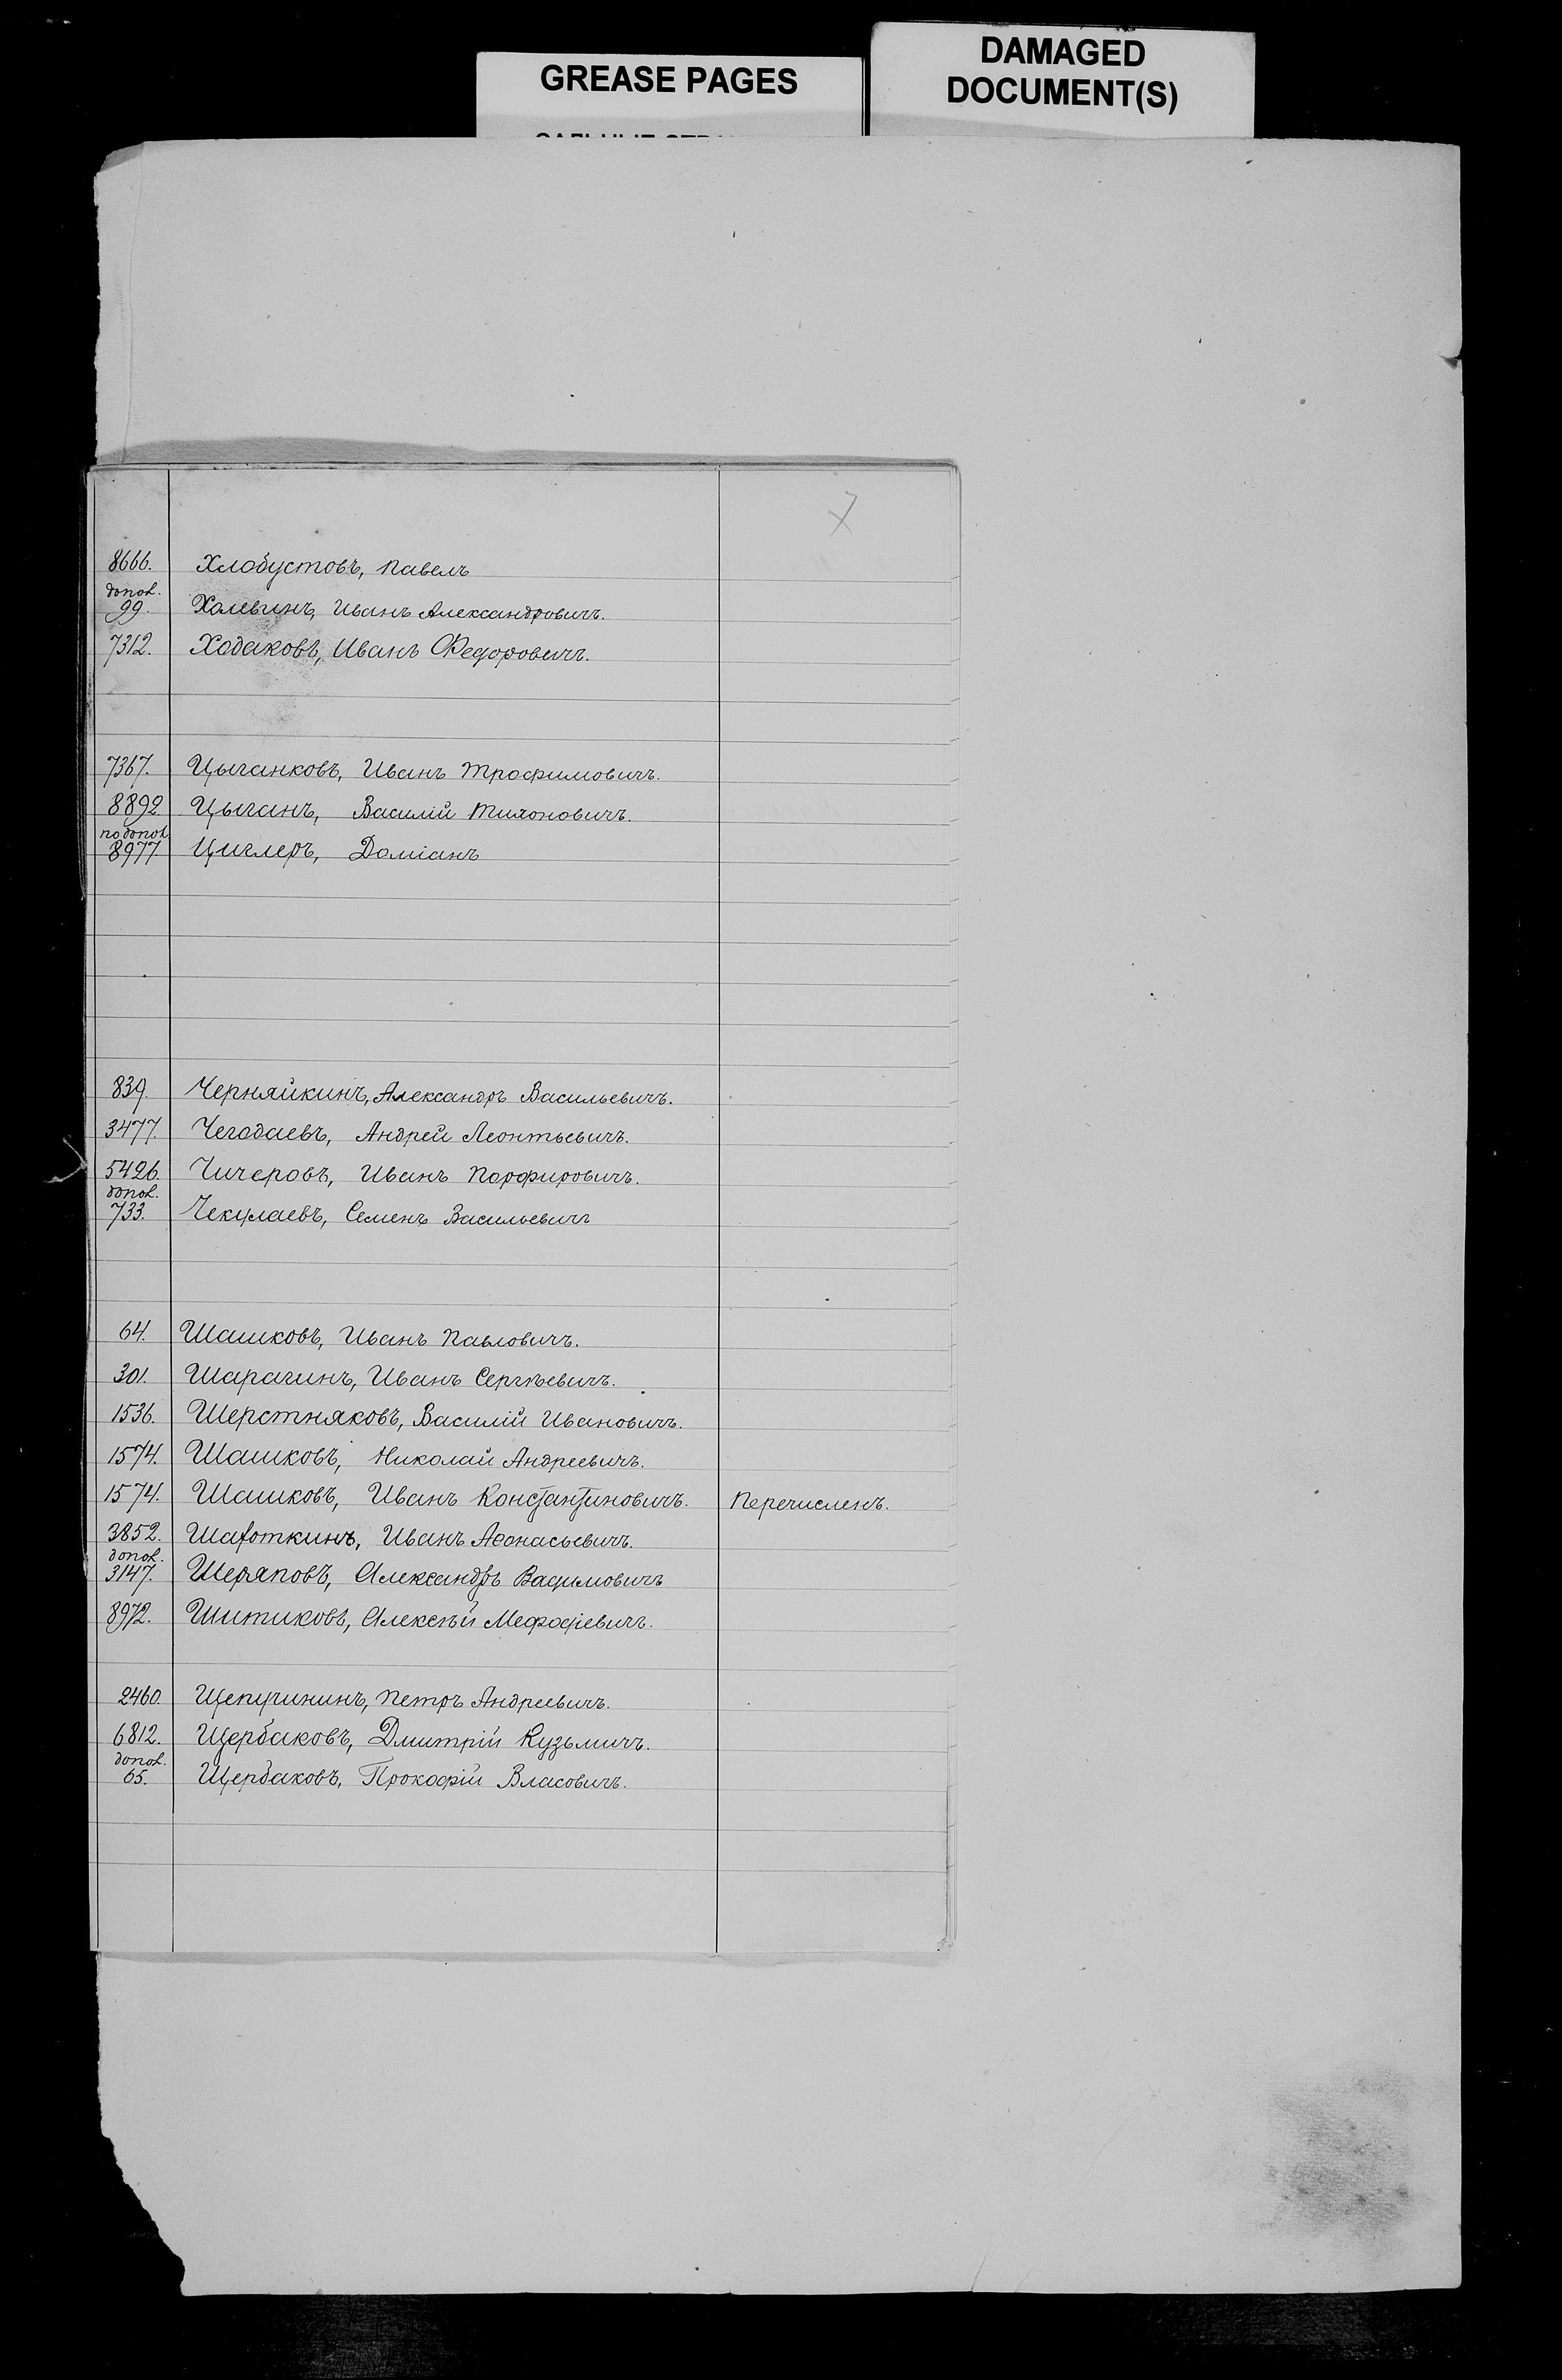 GREASE PAGES
DAMAGED
DOCUMENT(S)
8666. Хлобустовъ, Павелъ
допол.
99. Халевинъ, Иванъ Александровичъ.
7312. Ходаковъ, Иванъ Федоровичъ.
7367. Цыганковъ, Иванъ Трофимовичъ.
8892. Цыганъ, Василій Тихоновичъ.
по допол.
8977. Циглеръ, Доміанъ
839. Черняйкинъ, Александръ Васильевичъ.
3477. Чегодаевъ, Андрей Леонтьевичъ.
5426. Чичеровъ, Иванъ Порфировичъ.
допол.
733. Чекулаевъ, Семенъ Васильевичъ
64. Шашковъ, Иванъ Павловичъ.
301. Шарагинъ, Иванъ Сергѣевичъ.
1536. Шерстняковъ, Василій Ивановичъ.
1574. Шашковъ, Николай Андреевичъ.
1574. Шашковъ, Иванъ Константиновичъ. Перечисленъ.
3852. Иванъ Аѳонасьевичъ.
допол.
3147. Шеряповъ, Александръ
8972. Шитиковъ, Алексѣй Мефодіевичъ.
2460. Щепучининъ, Петръ Андреевичъ.
6812. Щербаковъ, Дмитрій Кузьмичъ.
допол.
65. Щербаковъ, Прокофій Власовичъ.